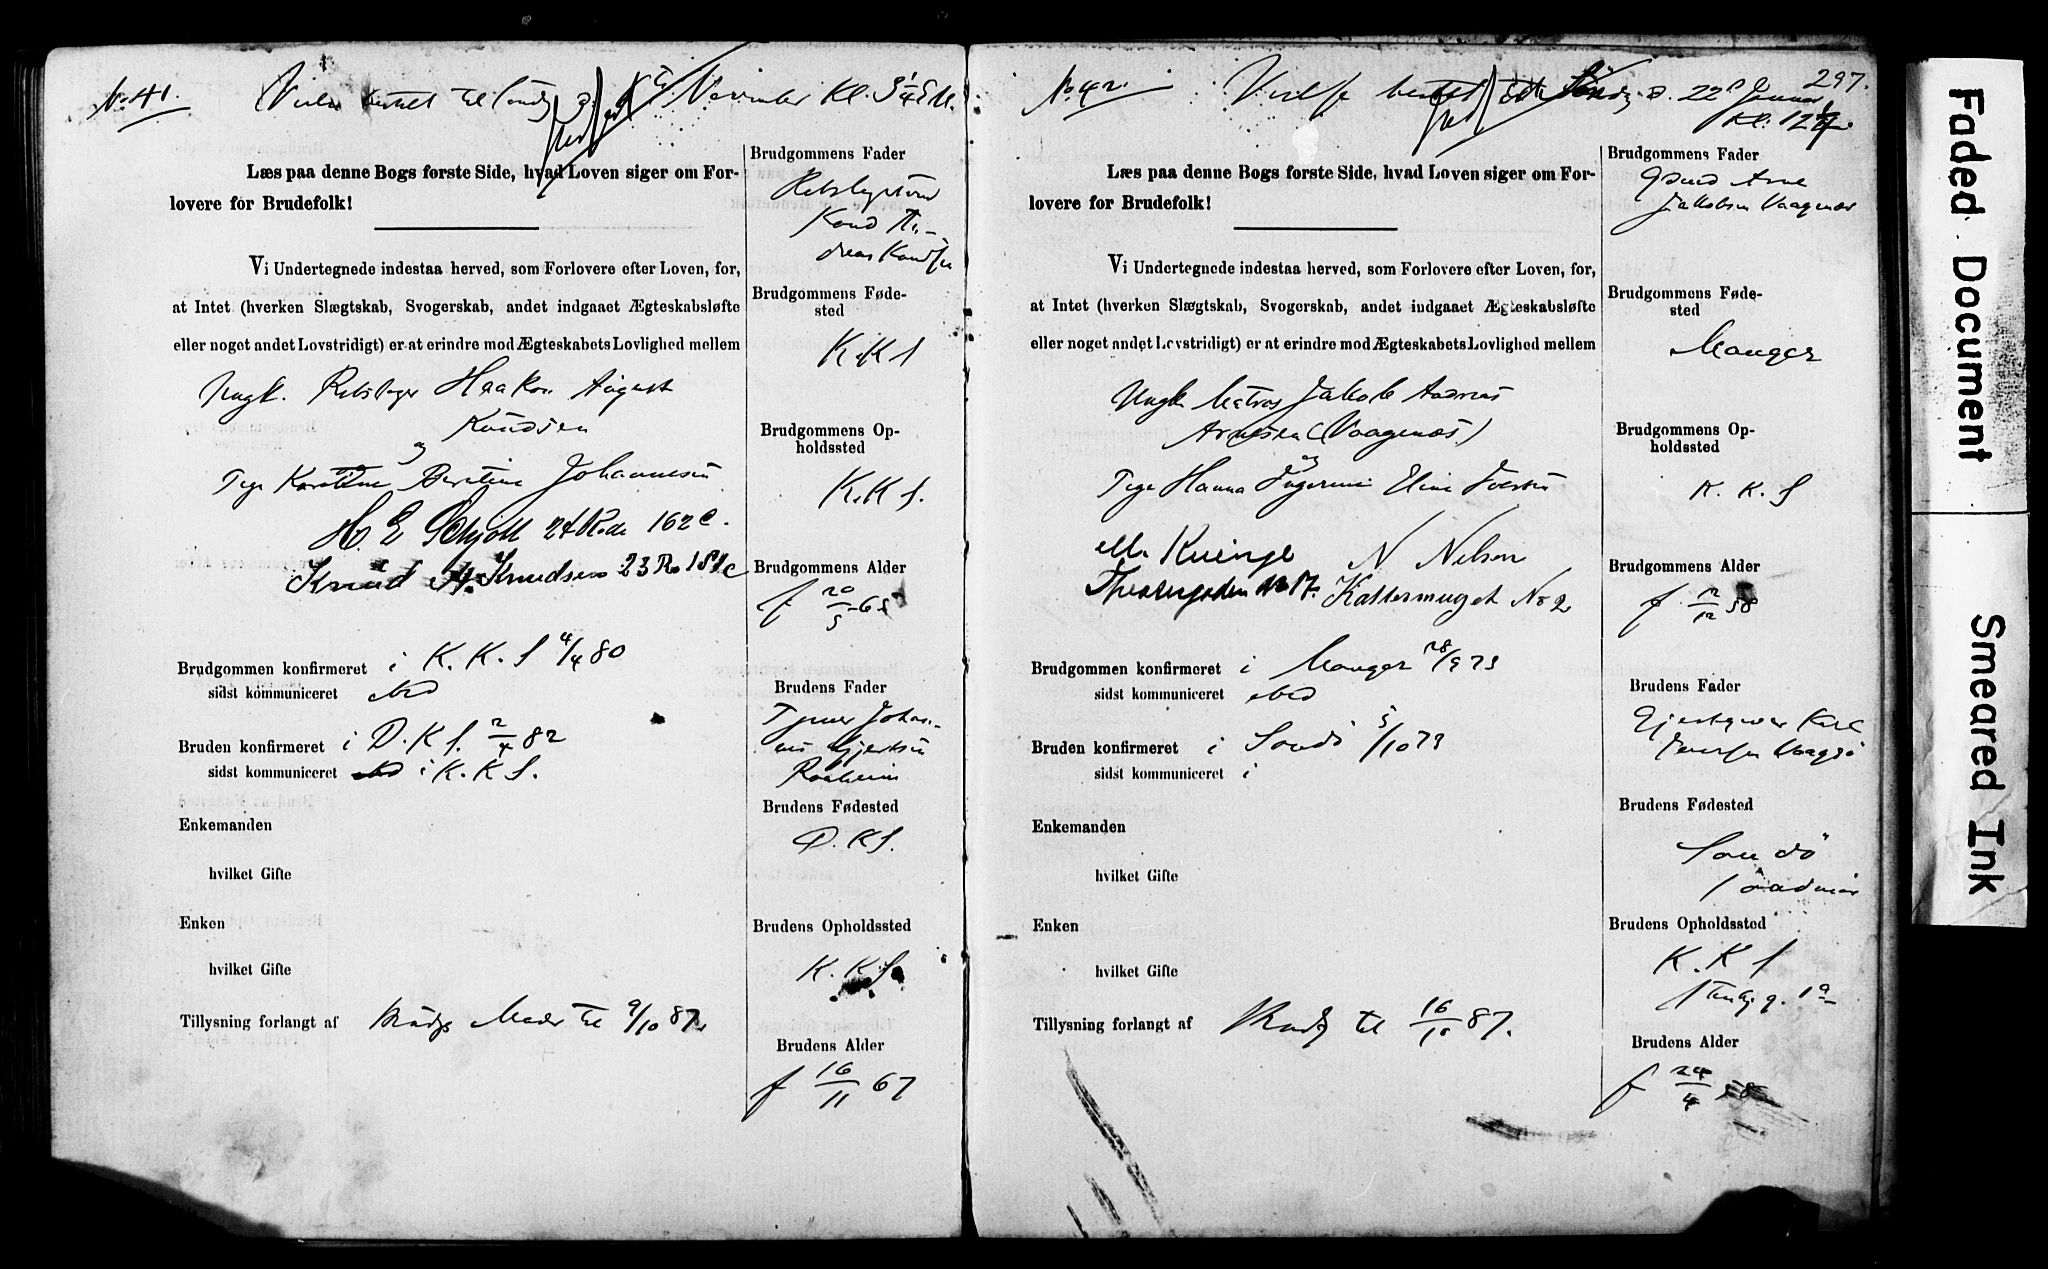 No 41.
November Kl. 5 1/4 EM.
Læs paa denne Bogs første Side, hvad Loven siger om For-
lovere for Brudefolk!
Vi Undertegnede indestaa herved, som Forlovere efter Loven, for,
at Intet (hverken Slægtskab, Svogerskab, andet indgaaet Ægteskabsløfte
eller noget andet Lovstridigt) er at erindre mod Ægteskabets Lovlighed mellem
Ungk. Rebslager Haakon August
Knudsen
og
Pige Berntine Johannesen
H. E. Schjött 24 Rode 162 c.
Knud A. Knudsen 23 Ro 181 c
Brudgommen konfirmeret i K. K. S 4/4 80
sidst kommuniceret ibid
Bruden konfirmeret i D. K S. 2/4 82
sidst kommuniceret i K. K S.
Enkemanden
hvilket Gifte
Enken
hvilket Gifte
Tillysning forlangt af Brudgs Moder til 9/10 87.
Brudgommens Fader
Knud An-
dreas Knudsen
BrudgommensFøde-
sted
K. K S
Brudgommens Op-
holdssted
K. K S.
Brudgommens Alder
f 20/5 65
Brudens Fader
Johan-
nes Gjertsen
Brudens Fødested
D. K S.
Brudens Opholdssted
K. K S.
Brudens Alder
f 16/11 67
No 42.
297.
Vielse bestet 22 Januar
Kl. 12
Læs paa denne Bogs første Side, hvad Loven siger om For-
lovere for Brudefolk!
Vi Undertegnede indestaa herved, som Forlovere efter Loven, for,
at Intet (hverken Slægtskab, Svogerskab, andet indgaaet Ægteskabsløfte
eller noget andet Lovstridigt) er at erindre mod Ægteskabets Lovlighed mellem
Ungk. Matros Jakob Andreas
Arnesen (Vaagenæs)
og
Pige Hanna Ingerine Eline Iversen
M. Kvinge N Nilsen
No 17. Kattermuget No 2
Brudgommen konfirmeret i Manger 28/9 73
sidst kommuniceret ibid
Bruden konfirmeret i Sandö 5/10 73
sidst kommuniceret i
Enkemanden
hvilket Gifte
Enken
hvilket Gifte
Tillysning forlangt af Brudg til 16/10 87.
Brudgommens Fader
Gmd Arne
Jakobsen Vaagenæs
Brudgommens Føde-
sted
Manger
Brudgommens Op-
holdssted
K. K. S
Brudgommens Alder
f. 12/12 58
Brudens Fader
Gjestgiver Karl
Iversen Vaagsö
Brudens Fødested
Sandö
Söndmör
Brudens Opholdssted
K. K S
1 a
Brudens Alder
f 24/4 58
Faded Document
Smeared Ink